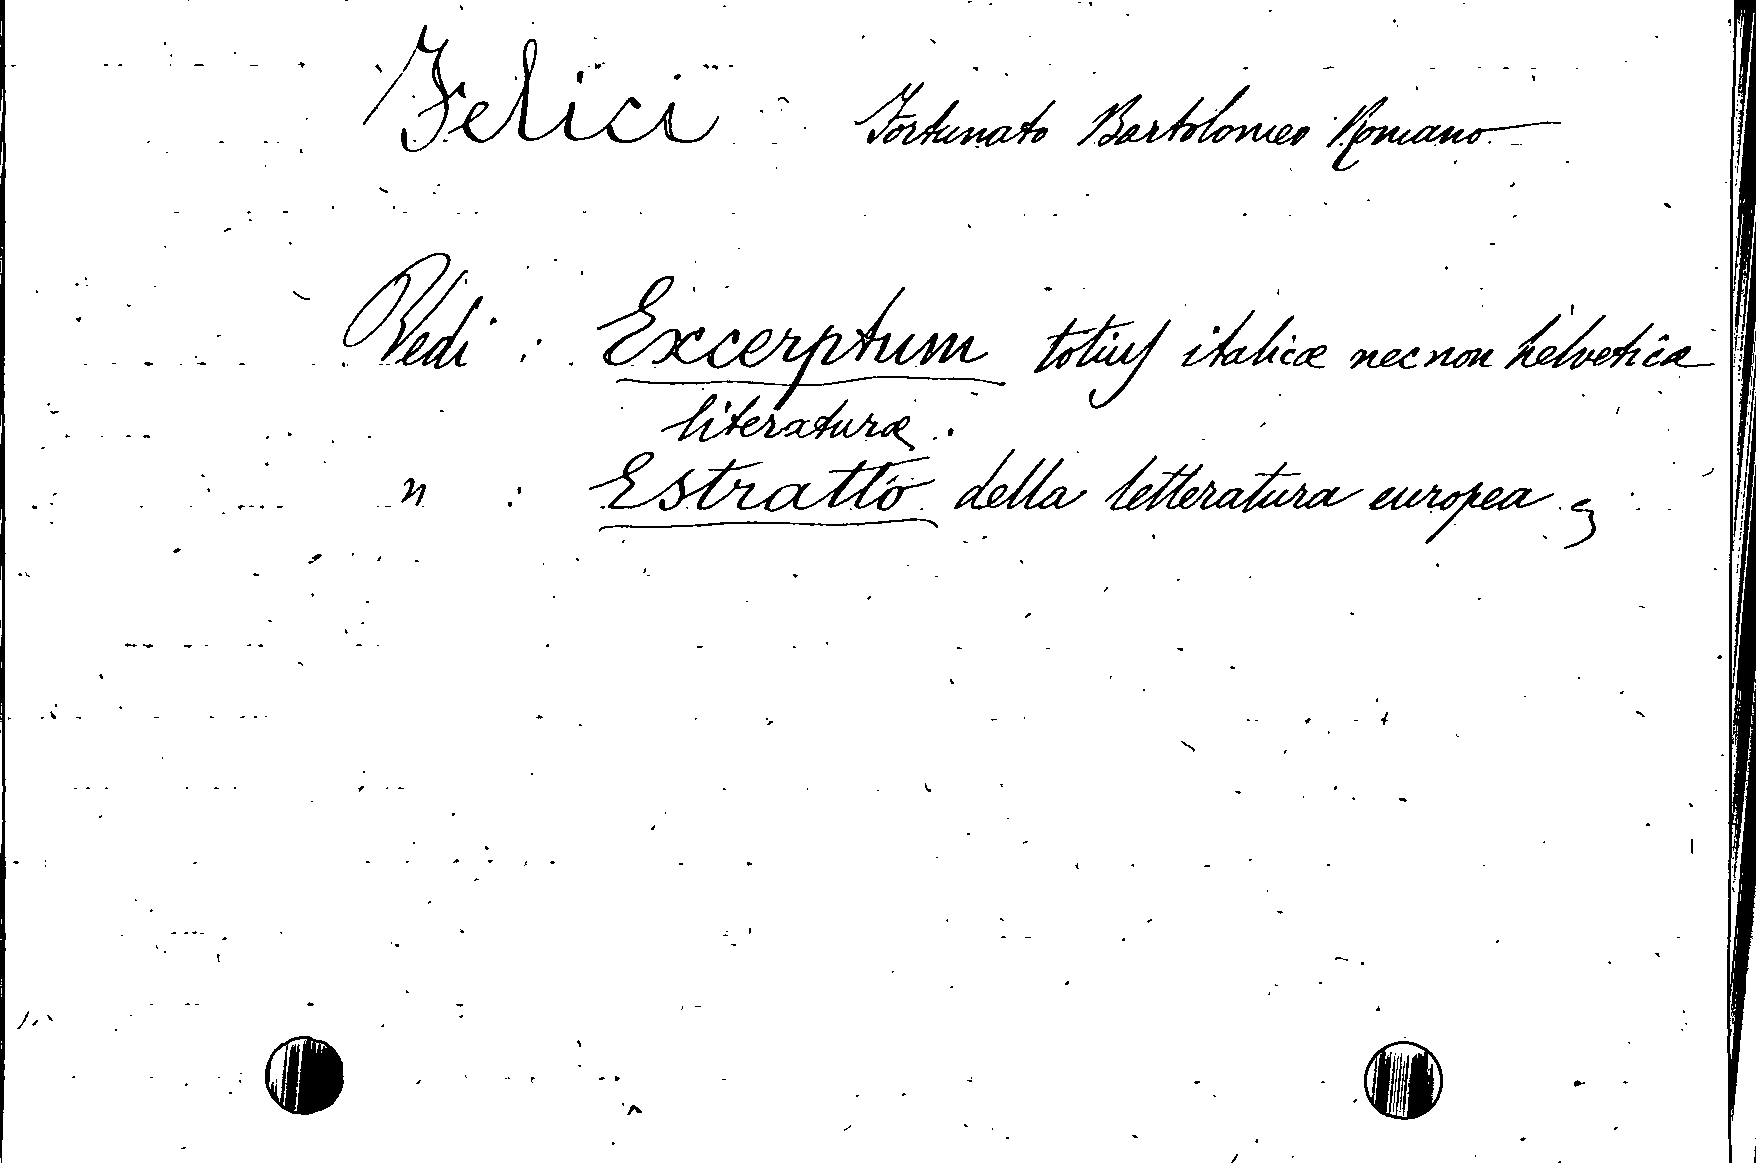 Felici Fortunato Bartolomeo Romano
Vedi : Excerptum totius italicæ necnon helveticæ
literaturæ.
" : Estratto della letteratura europea